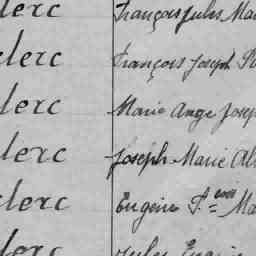 lerc François Jules Ma
lerc François Joseph
lerc Marie Ange Josep
lerc Joseph Marie Al
lerc Eugène Ma
lerc Jules Eugène